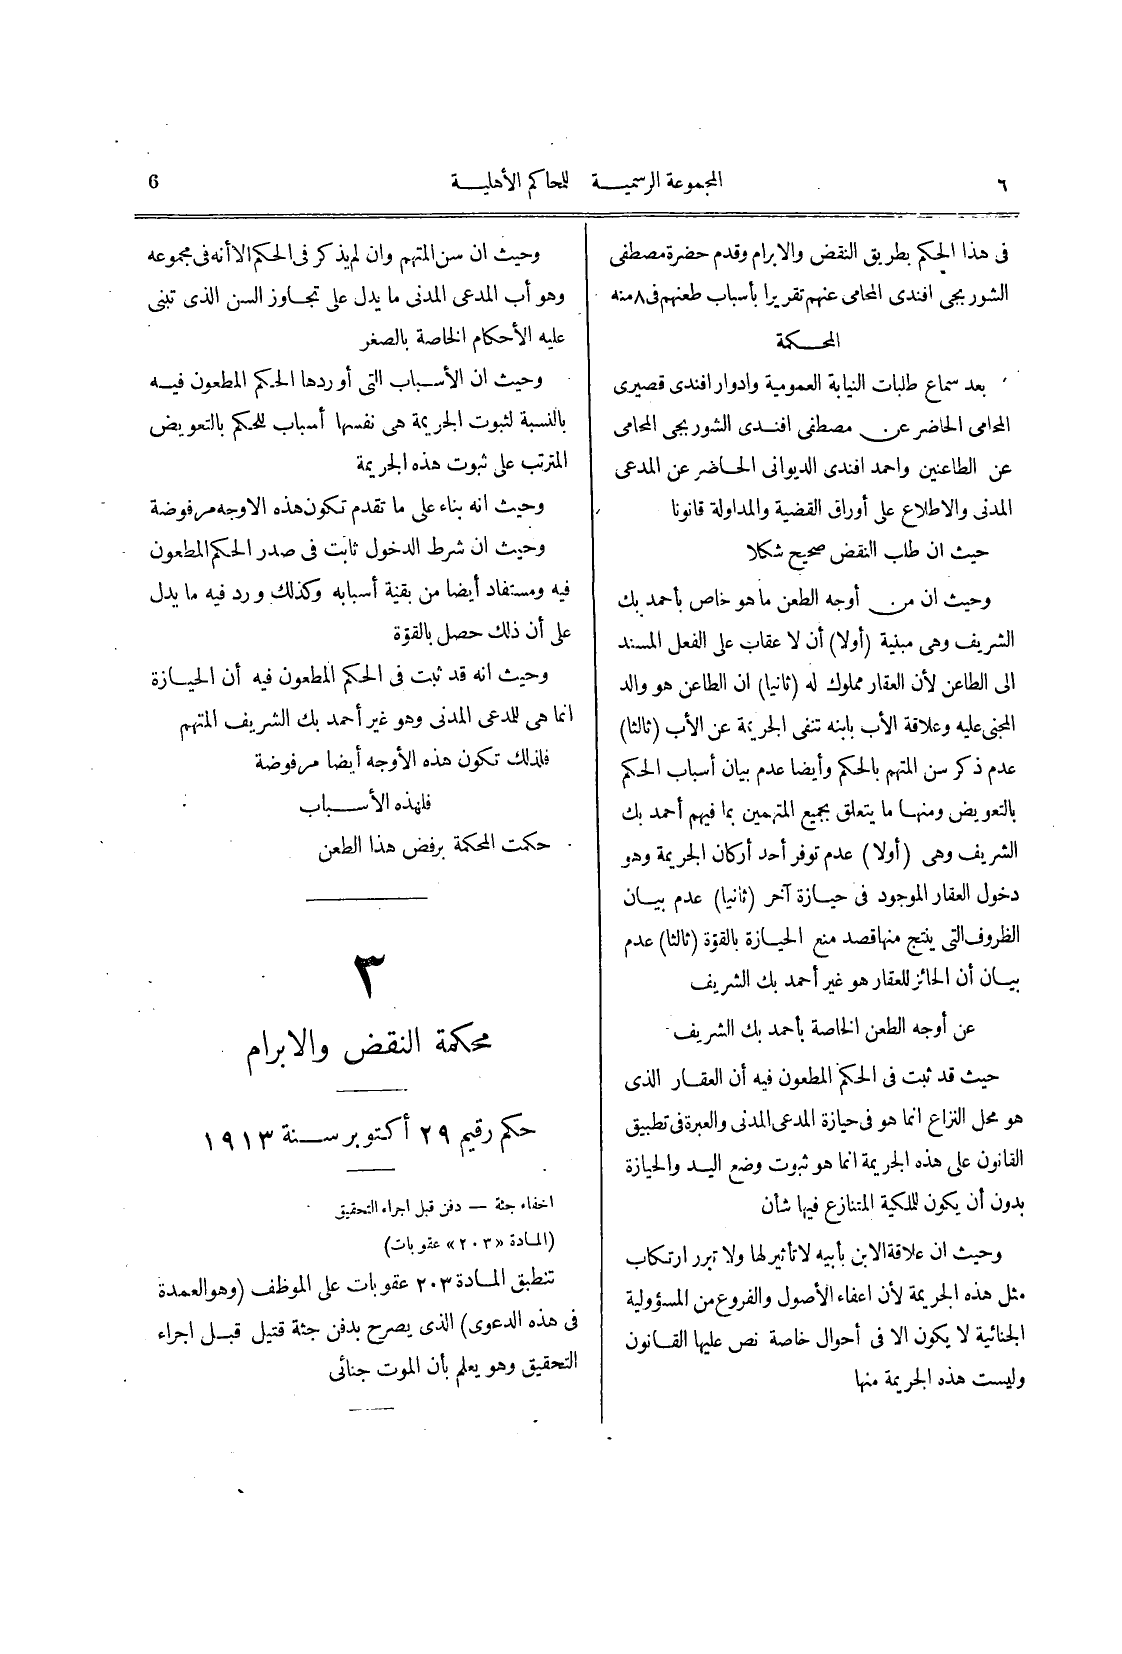 ٦
المجموعة الرسمية للمحاكم الأهلية
6
فى هذا الحكم بطريق النقض والابرام وقدم حضرة مصطفى
الشوربجى افندى المحامى عنهم تقريرا بأسباب طعنهم فى ٨ منه
المحكمة
بعد سماع طلبات النيابة العمومية وادوار افندى قصيرى
المحامى الحاضر عن مصطفى افندى الشوربجى المحامى
عن الطاعنين واحمد افندى الديوانى الحاضر عن المدعى
المدنى والاطلاع على أوراق القضية والمداولة قانونا
حيث ان طلب النقض صحيح شكلا
وحيث ان من أوجه الطعن ما هو خاص بأحمد بك
الشريف وهى مبنية (أولا) أن لا عقاب على الفعل المسند
الى الطاعن لأن العقار مملوك له (ثانيا) ان الطاعن هو والد
المجنى عليه وعلاقة الأب بابنه تنفى الجريمة عن الأب (ثالثا)
عدم ذكر سن المتهم بالحكم وأيضا عدم بيان أسباب الحكم
بالتعويض ومنها ما يتعلق بجميع المتهمين بما فيهم أحمد بك
الشريف وهى (أولا) عدم توفر أحد أركان الجريمة وهو
دخول العقار الموجود فى حيازة آخر (ثانيا) عدم بيان
الظروف التى ينتج منها قصد منع الحيازة بالقوّة (ثالثا) عدم
بيان أن الحائز للعقار هو غير أحمد بك الشريف
عن أوجه الطعن الخاصة بأحمد بك الشريف
حيث قد ثبت فى الحكم المطعون فيه أن العقار الذى
هو محل النزاع انما هو فى حيازة المدعى المدنى والعبرة فى تطبيق
القانون على هذه الجريمة انما هو ثبوت وضع اليد والحيازة
بدون أن يكون للملكية المتنازع فيها شأن
وحيث ان علاقة الابن بأبيه لا تأثير لها ولا تبرر ارتكاب
مثل هذه الجريمة لأن اعفاء الأصول والفروع من المسؤولية
الجنائية لا يكون الا فى أحوال خاصة نص عليها القانون
وليست هذه الجريمة منها
وحيث ان سن المتهم وان لم يذكر فى الحكم الا أنه فى مجموعه
وهو أب المدعى المدنى ما يدل على تجاوز السن الذى تبنى
عليه الأحكام الخاصة بالصغر
وحيث ان الأسباب التى أوردها الحكم المطعون فيه
بالنسبة لثبوت الجريمة هى نفسها أسباب للحكم بالتعويض
المترتب على ثبوت هذه الجريمة
وحيث انه بناء على ما تقدم تكون هذه الاوجه مرفوضة
وحيث ان شرط الدخول ثابت فى صدر الحكم المطعون
فيه ومستفاد أيضا من بقية أسبابه وكذلك ورد فيه ما يدل
على أن ذلك حصل بالقوّة
وحيث انه قد ثبت فى الحكم المطعون فيه أن الحيازة
انما هى للمدعى المدنى وهو غير أحمد بك الشريف المتهم
فلذلك تكون هذه الأوجه أيضا مرفوضة
فلهذه الأسباب
حكمت المحكمة برفض هذا الطعن
٣
محكمة النقض والابرام
حكم رقيم ٢٩ أكتوبر سنة ١٩١٣
اخفاء جثة — دفن قبل اجراء التحقيق
(المادة «٢٠٣» عقوبات)
تنطبق المادة ٢٠٣ عقوبات على الموظف (وهو العمدة
فى هذه الدعوى) الذى يصرح بدفن جثة قتيل قبل اجراء
التحقيق وهو يعلم بأن الموت جنائى